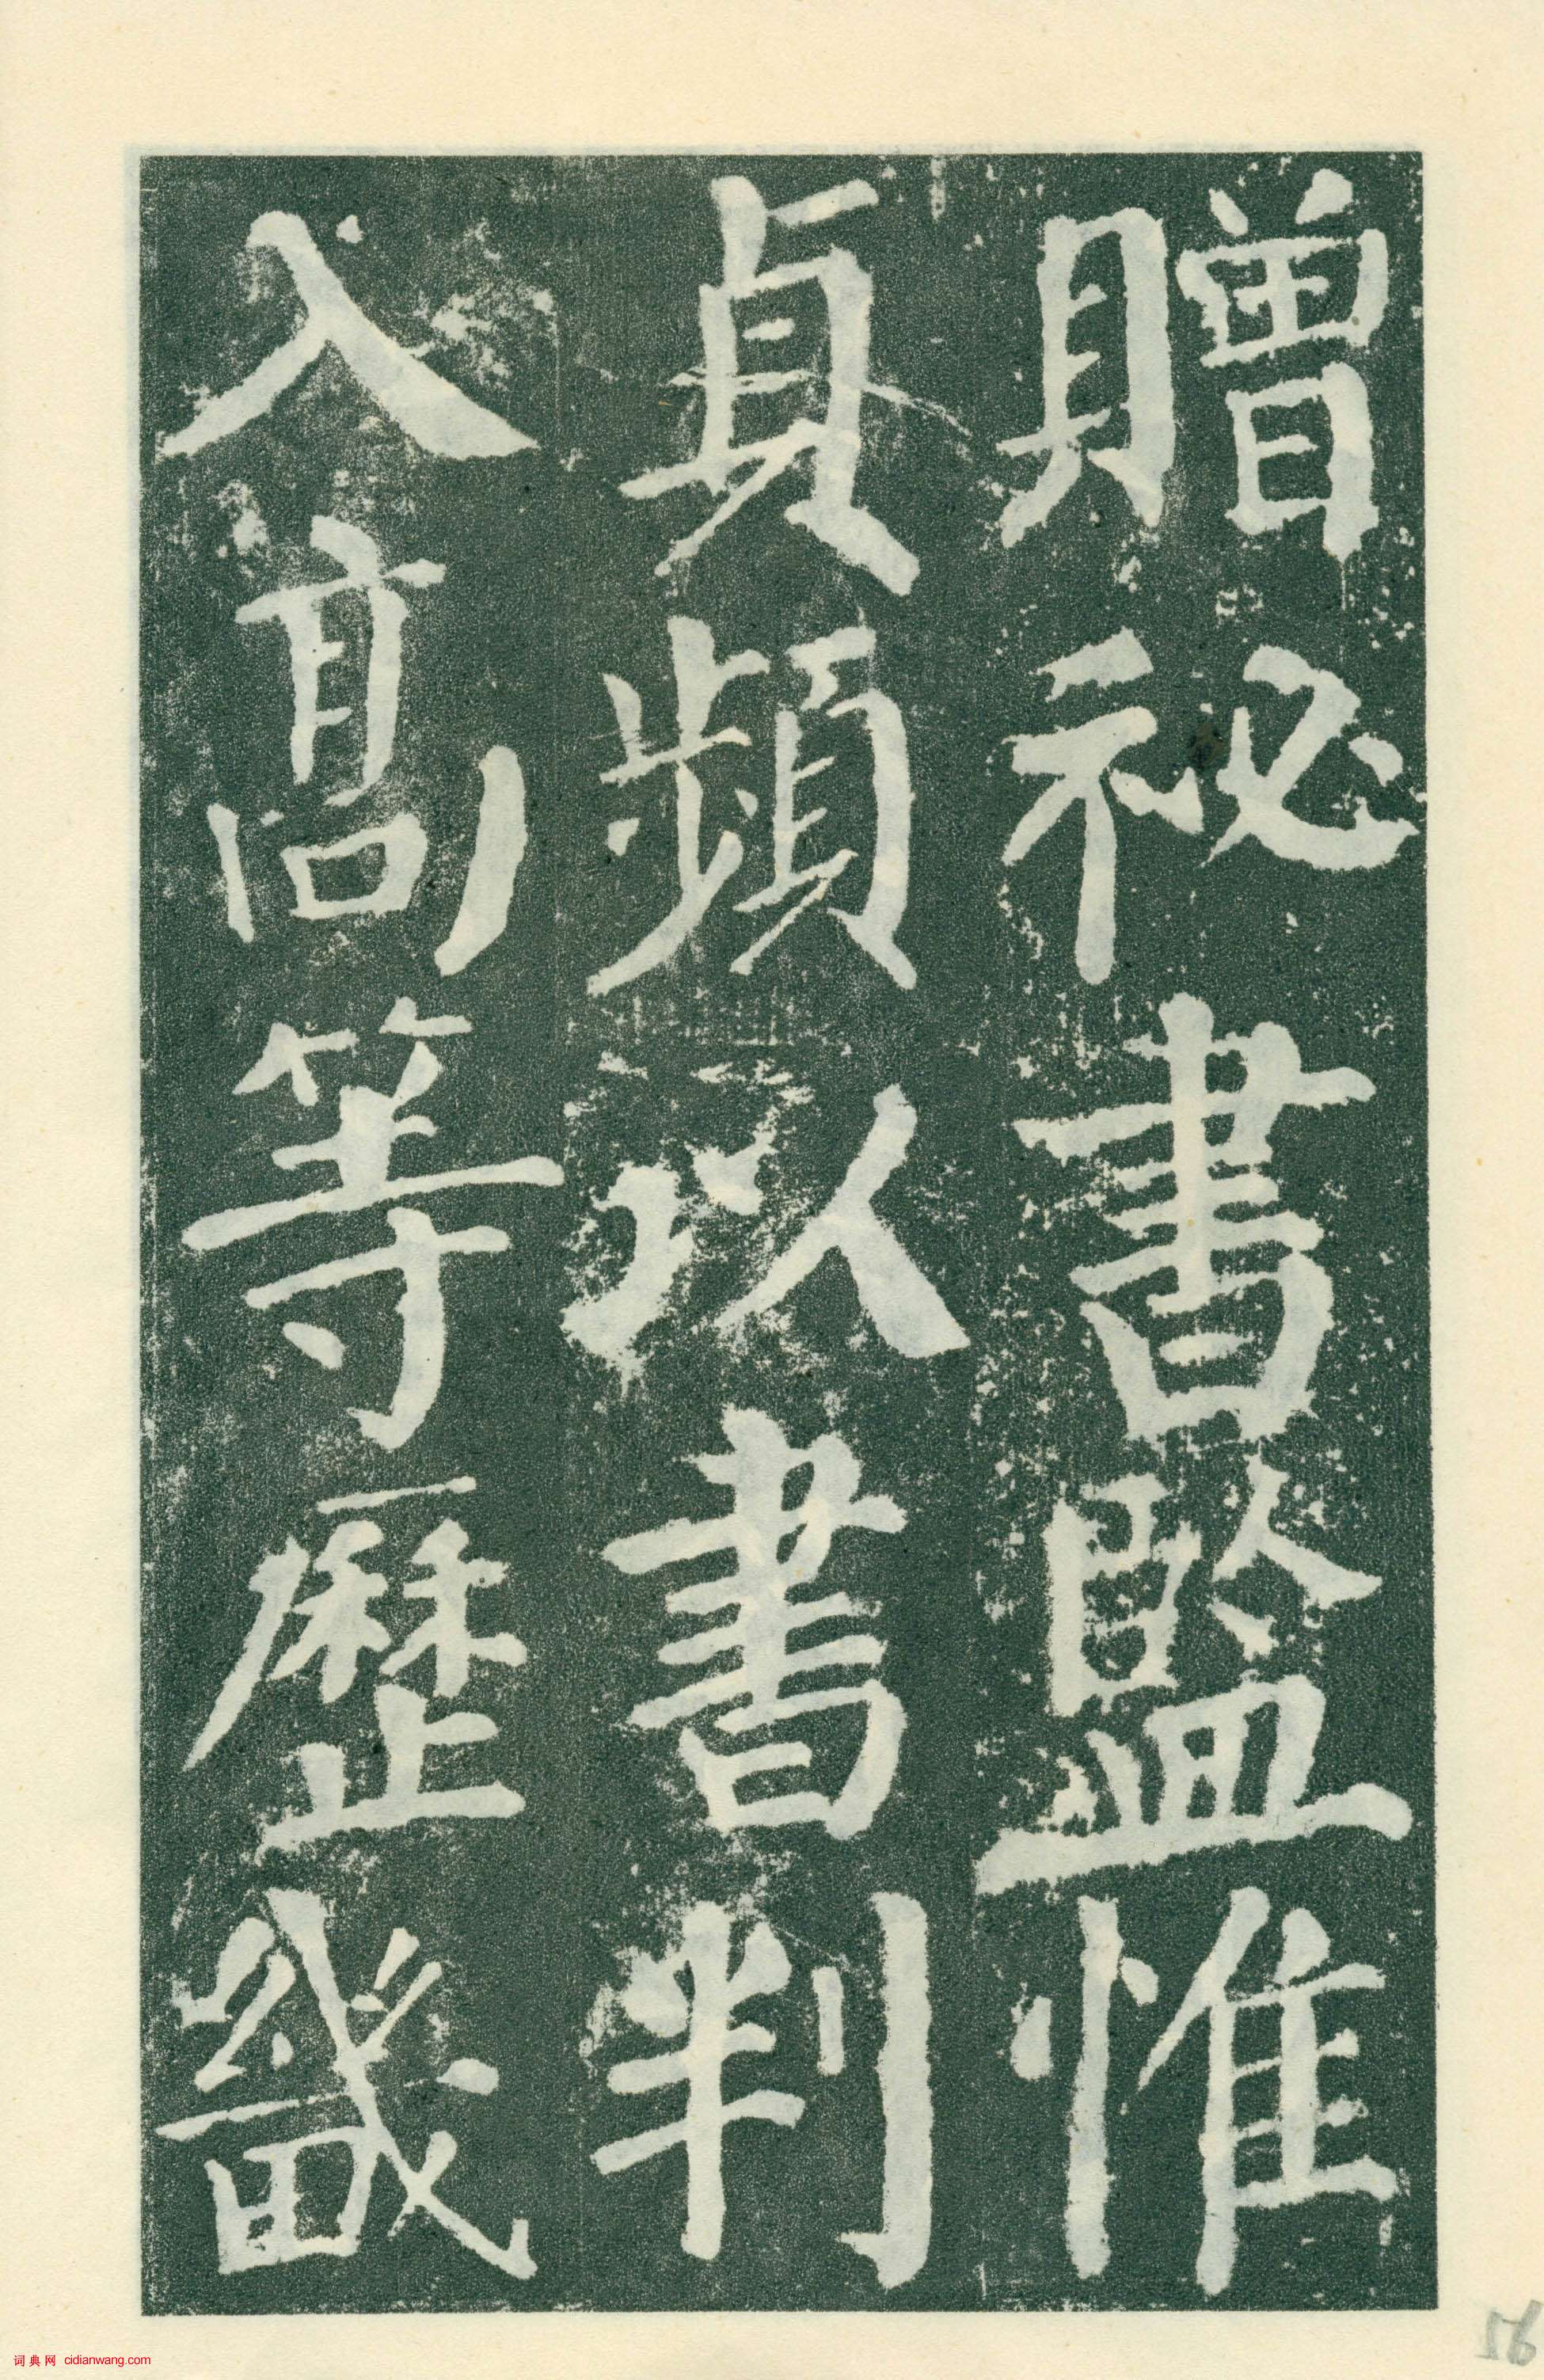 贈祕書監惟
貞頻以書判
入高等歷畿
词典网 cidianwang.com
56